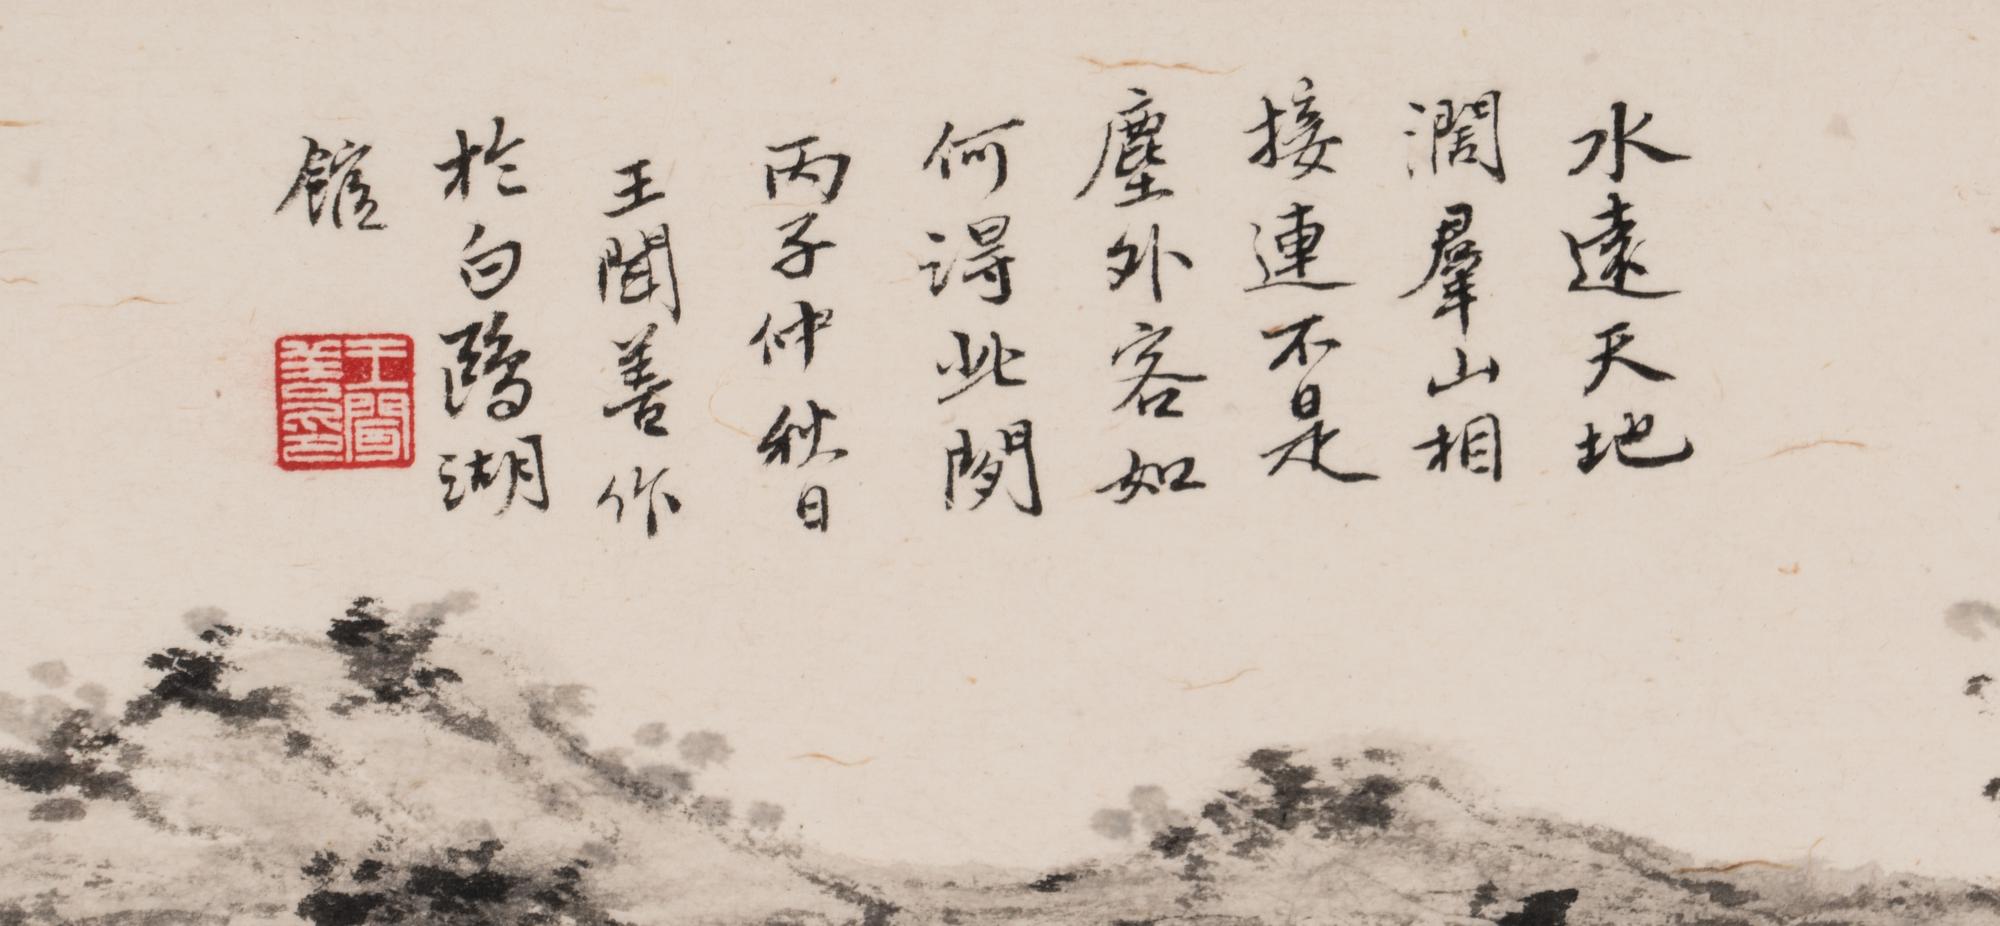 水遠天地
濶羣山相
接連不是
塵外客如
何得此閒
丙子仲秋日
王聞善作
於白鷗湖
館
王聞
善印